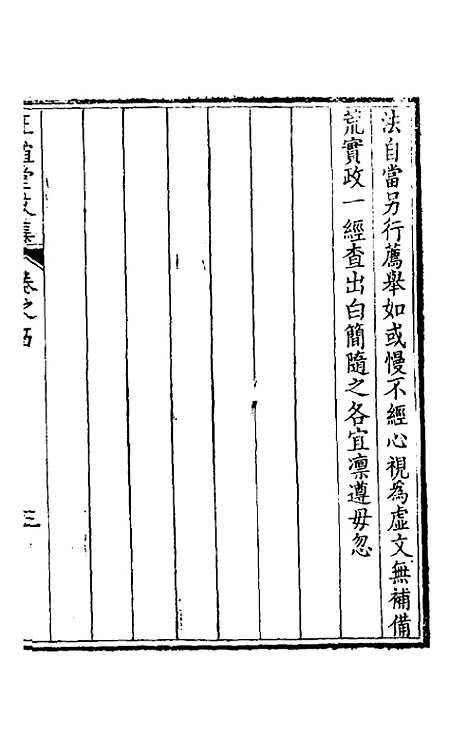 法自當另行薦舉如或慢不經心視為虛文無補備
荒實政一經查出白簡隨之各宜凜遵毋忽
正誼堂文集
卷之四
三